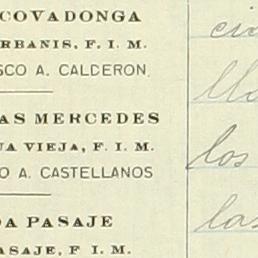 COVADONGA
RBANIS, F. I. M.
SCO A. CALDERON.
AS MERCEDES
UA VIEJA, F. I. M.
O A. CASTELLANOS
DA PASAJE
ASAJE, F I. M.
los
las